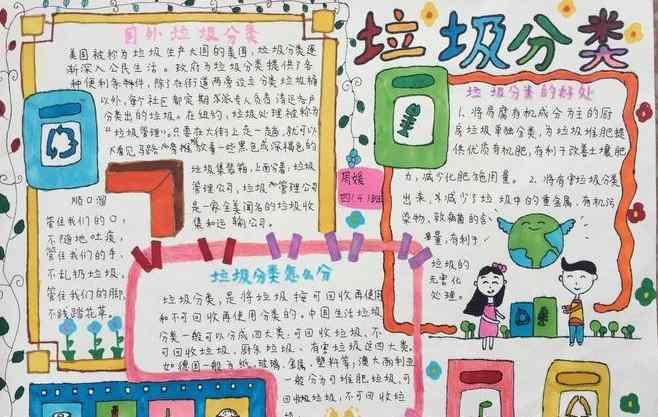 垃圾分类
国外垃圾分类
美国被称为垃圾生产大国的美国，垃圾分类逐
渐深入公民生活。政府为垃圾分类提供了各
种便利条件，除了在街道两旁设立分类垃圾桶
以外，每个社区都定期派专人负责清运各户
分类出的垃圾。在纽约，垃圾处理被称为
"垃圾管理"。只要在大街上走一走，就可以
看见马路 放着一些黑色或深褐色的
垃圾集装箱，上面分着：垃圾
管理公司，垃圾管理公司
是一家全美闻名的垃圾收
集和运输公司。
顺口溜
管住我们的口，
不随地吐痰，
管住我们的手，
不乱扔垃圾，
管住我们的脚，
不践踏花草。
周媛
四(4)班
垃圾分类的好处
1.将易腐有机成分为主的厨
房垃圾单独分类，为垃圾堆肥提
供优质有机肥，有利于改善土壤肥
力，减少化肥施用量。2.将有害垃圾分类
出来，减少了垃圾中的重金属，有机污
染物，致病菌的含
量，有利于
垃圾的
无害化
处理。
垃圾分类怎么分
垃圾分类，是将垃圾按可回收再使用
和不可回收再使用分类的。中国生活垃圾
分类一般可以分成四大类：可回收垃圾、不
可回收垃圾、厨余垃圾、有害垃圾这四大类。
如德国一般为纸、玻璃、金属、塑料等；澳大利亚
一般分为可堆肥垃圾，可
回收垃圾，不可回收垃
圾